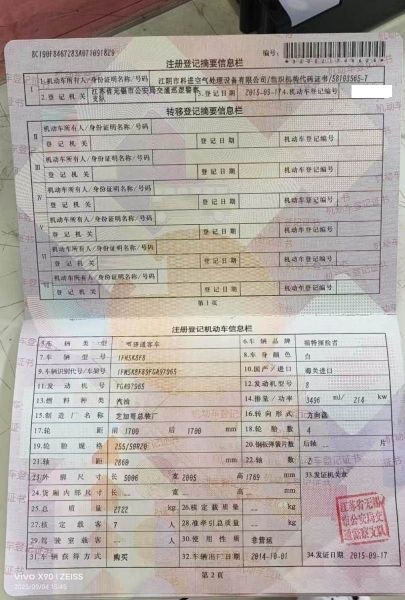 编号:
注册登记摘要信息栏
I 1.机动车所有人/身份证明名称/号码 江阴市科进空气处理设备有限公司/组织机构代码证书/58193565-7
2.登记机关 江苏省无锡市公安局交通巡逻警察支队 3.登记日期 2015-09-17 4.机动车登记编号
转移登记摘要信息栏
II 机动车所有人/身份证明名称/号码
登记机关 登记日期 机动车登记编号
III 机动车所有人/身份证明名称/号码
登记机关 登记日期 机动车登记编号
IV 机动车所有人/身份证明名称/号码
登记机关 登记日期 机动车登记编号
V 机动车所有人/身份证明名称/号码
登记机关 登记日期 机动车登记编号
VI 机动车所有人/身份证明名称/号码
登记机关 登记日期 机动车登记编号
VII 机动车所有人/身份证明名称/号码
登记机关 登记日期 机动车登记编号
第1页
注册登记机动车信息栏
5.车辆类型 普通客车 6.车辆品牌 福特探险者
7.车辆型号 1FM5K8F8 8.车身颜色 白
9.车辆识别代号/车架号 10.国产/进口 海关进口
11.发动机号 FGA97965 12.发动机型号 8
13.燃料种类 汽油 14.排量/功率 3496 ml/ 214 kw
15.制造厂名称 芝加哥总装厂 16.转向形式 方向盘
17.轮距 前 1700 后 1700 mm 18.轮胎数 4
19.轮胎规格 255/50R20 20.钢板弹簧片数 后轴 -- 片
21.轴距 2860 mm 22.轴数 2
23.外廓尺寸 长 5006 宽 2005 高 1769 mm 33.发证机关章
24.货厢内部尺寸 长 -- 宽 -- 高 -- mm
25.总质量 2722 kg 26.核定载质量 -- kg
27.核定载客 7 人 28.准牵引总质量 -- kg
29.驾驶室载客 -- 人 30.使用性质 非营运
31.车辆获得方式 购买 32.车辆出厂日期 2014-10-01 34.发证日期 2015-09-17
江苏省无锡市公安局交通巡逻警察支队
第2页
vivo X90 | ZEISS
2023/09/04 16:45